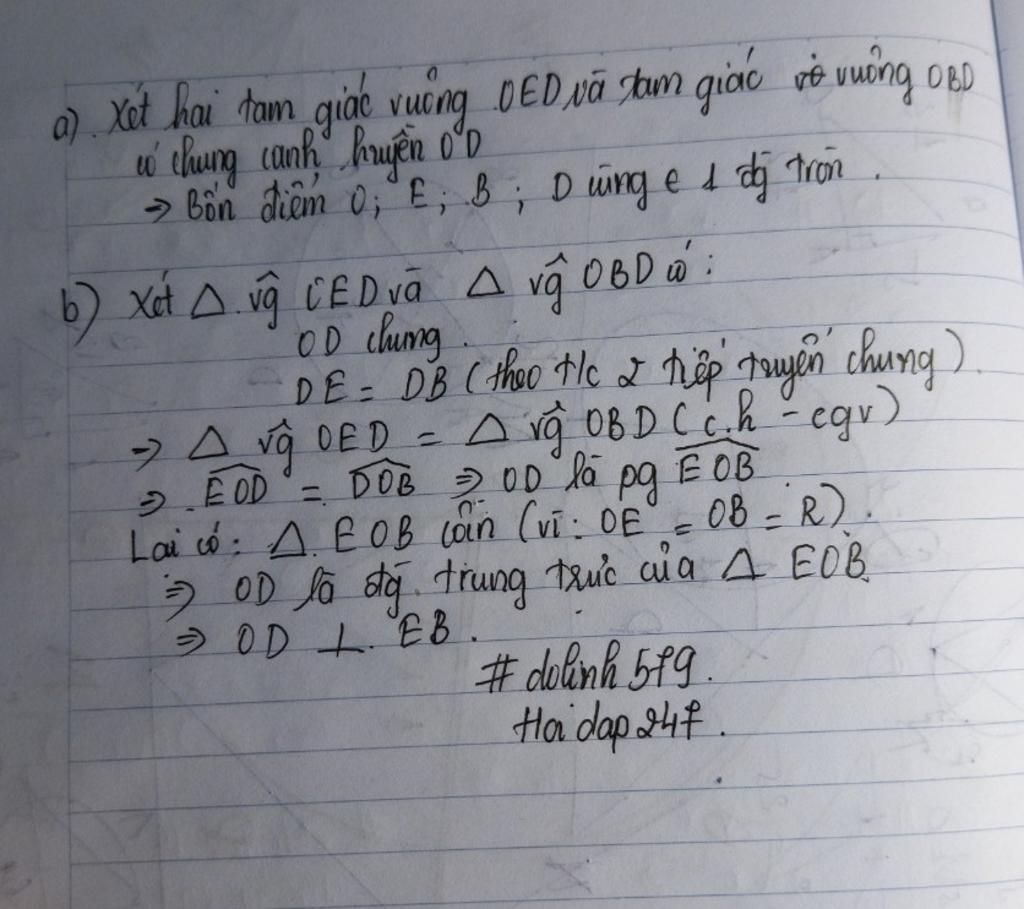 a). Xét hai tam giác vuông OED và tam giác vuông OBD
có chung cạnh huyền OD
→ Bốn điểm O; E; B; D cùng ∈ 1 đg tròn.
b) Xét △ vg OED và △ vg OBD có:
OD chung.
DE = DB (theo t/c 2 tiếp tuyến chung).
→ △ vg OED = △ vg OBD (c.h - cgv)
⇒ \widehat{EOD} = \widehat{DOB} ⇒ OD là pg \widehat{EOB}
Lại có: △ EOB cân (vì: OE = OB = R).
⇒ OD là đg trung trực của △ EOB
⇒ OD ⊥ EB.
# dolinh 579.
Hoi dap 247.